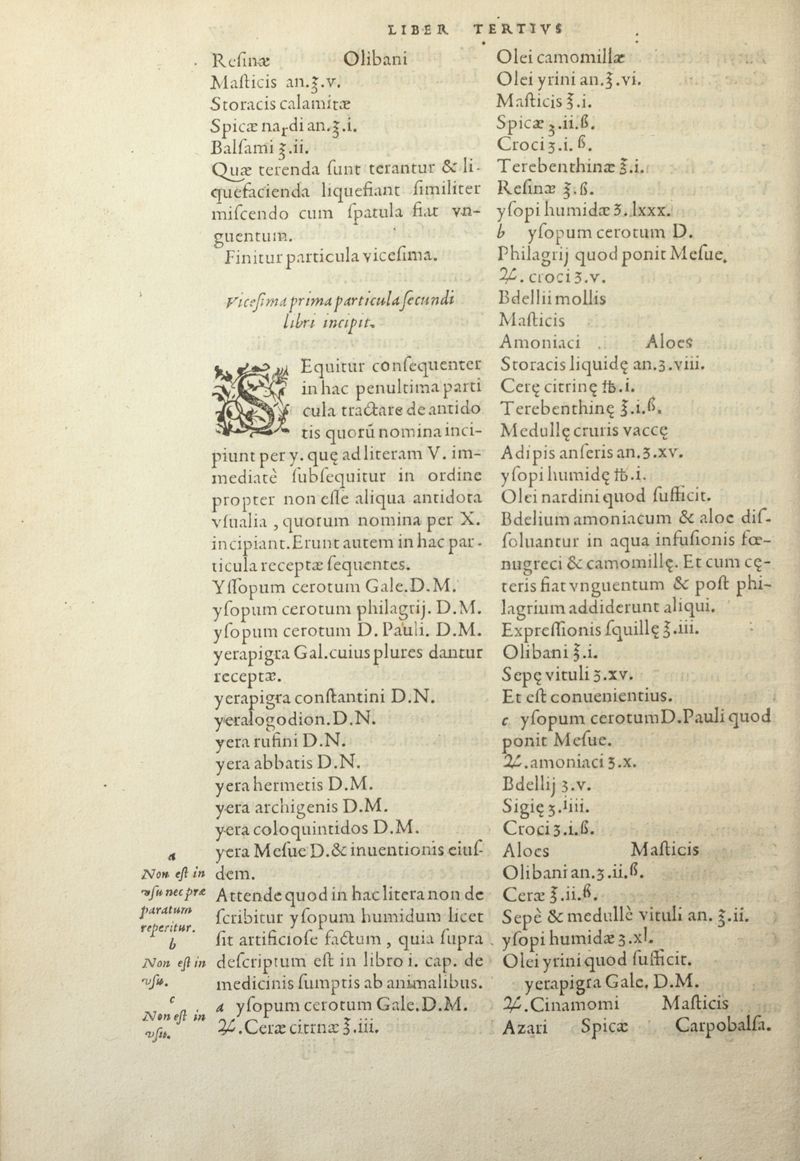 LIBER TERTIVS
Resinæ Olibani
Masticis an.℥.v.
Storacis calamitæ
Spicæ nardi an.℥.i.
Balsami ℥.ii.
Quæ terenda sunt terantur & li-
quefacienda liquefiant similiter
miscendo cum spatula fiat vn-
guentum.
Finitur particula vicesima.
Vicesima prima particula secundi
libri incipit.
SEquitur consequenter
in hac penultima parti
cula tractare de antido
tis quorū nomina inci-
piunt per y. quę ad literam V. im-
mediatè subsequitur in ordine
propter non esse aliqua antidota
vsualia, quorum nomina per X.
incipiant. Erunt autem in hac par-
ticula receptæ sequentes.
Yssopum cerotum Gale.D.M.
ysopum cerotum philagrij. D.M.
ysopum cerotum D. Pauli. D.M.
yerapigra Gal.cuius plures dantur
receptæ.
yerapigra constantini D.N.
yeralogodion.D.N.
yera rufini D.N.
yera abbatis D.N.
yera hermetis D.M.
yera archigenis D.M.
yera coloquintidos D.M.
yera Mesue D.& inuentionis eius-
dem.
Attende quod in hac litera non de
scribitur ysopum humidum licet
sit artificiose factum, quia supra
descriptum est in libro i. cap. de
medicinis sumptis ab animalibus.
a ysopum cerotum Gale.D.M.
♃.Ceræ citrinæ ℥.iii.
a
Non est in
vsu nec præ
paratum
reperitur.
b
Non est in
vsu.
c
Non est in
vsu.
Olei camomillæ
Olei yrini an.℥.vi.
Masticis ℥.i.
Spicæ ʒ.ii.ß.
Croci ʒ.i.ß.
Terebenthinæ ℥.i.
Resinæ ℥.ß.
ysopi humidæ ʒ.lxxx.
b ysopum cerotum D.
Philagrij quod ponit Mesue.
♃. croci ʒ.v.
Bdellii mollis
Masticis
Amoniaci Aloes
Storacis liquidę an.ʒ.viii.
Cerę citrinę ℔.i.
Terebenthinę ℥.i.ß.
Medullę cruris vaccę
Adipis anseris an.ʒ.xv.
ysopi humidę ℔.i.
Olei nardini quod sufficit.
Bdelium amoniacum & aloe dis-
soluantur in aqua infusionis fœ-
nugreci & camomillę. Et cum cę-
teris fiat vnguentum & post phi-
lagrium addiderunt aliqui.
Expressionis squillę ℥.iii.
Olibani ℥.i.
Sepę vituli ʒ.xv.
Et est conuenientius.
c ysopum cerotum D.Pauli quod
ponit Mesue.
♃.amoniaci ʒ.x.
Bdellij ʒ.v.
Sigię ʒ.iiii.
Croci ʒ.i.ß.
Aloes Masticis
Olibani an.ʒ.ii.ß.
Ceræ ℥.ii.ß.
Sepè & medullè vituli an. ℥.ii.
ysopi humidæ ʒ.xl.
Olei yrini quod sufficit.
yerapigra Gale. D.M.
♃.Cinamomi Masticis
Azari Spicæ Carpobalsa.